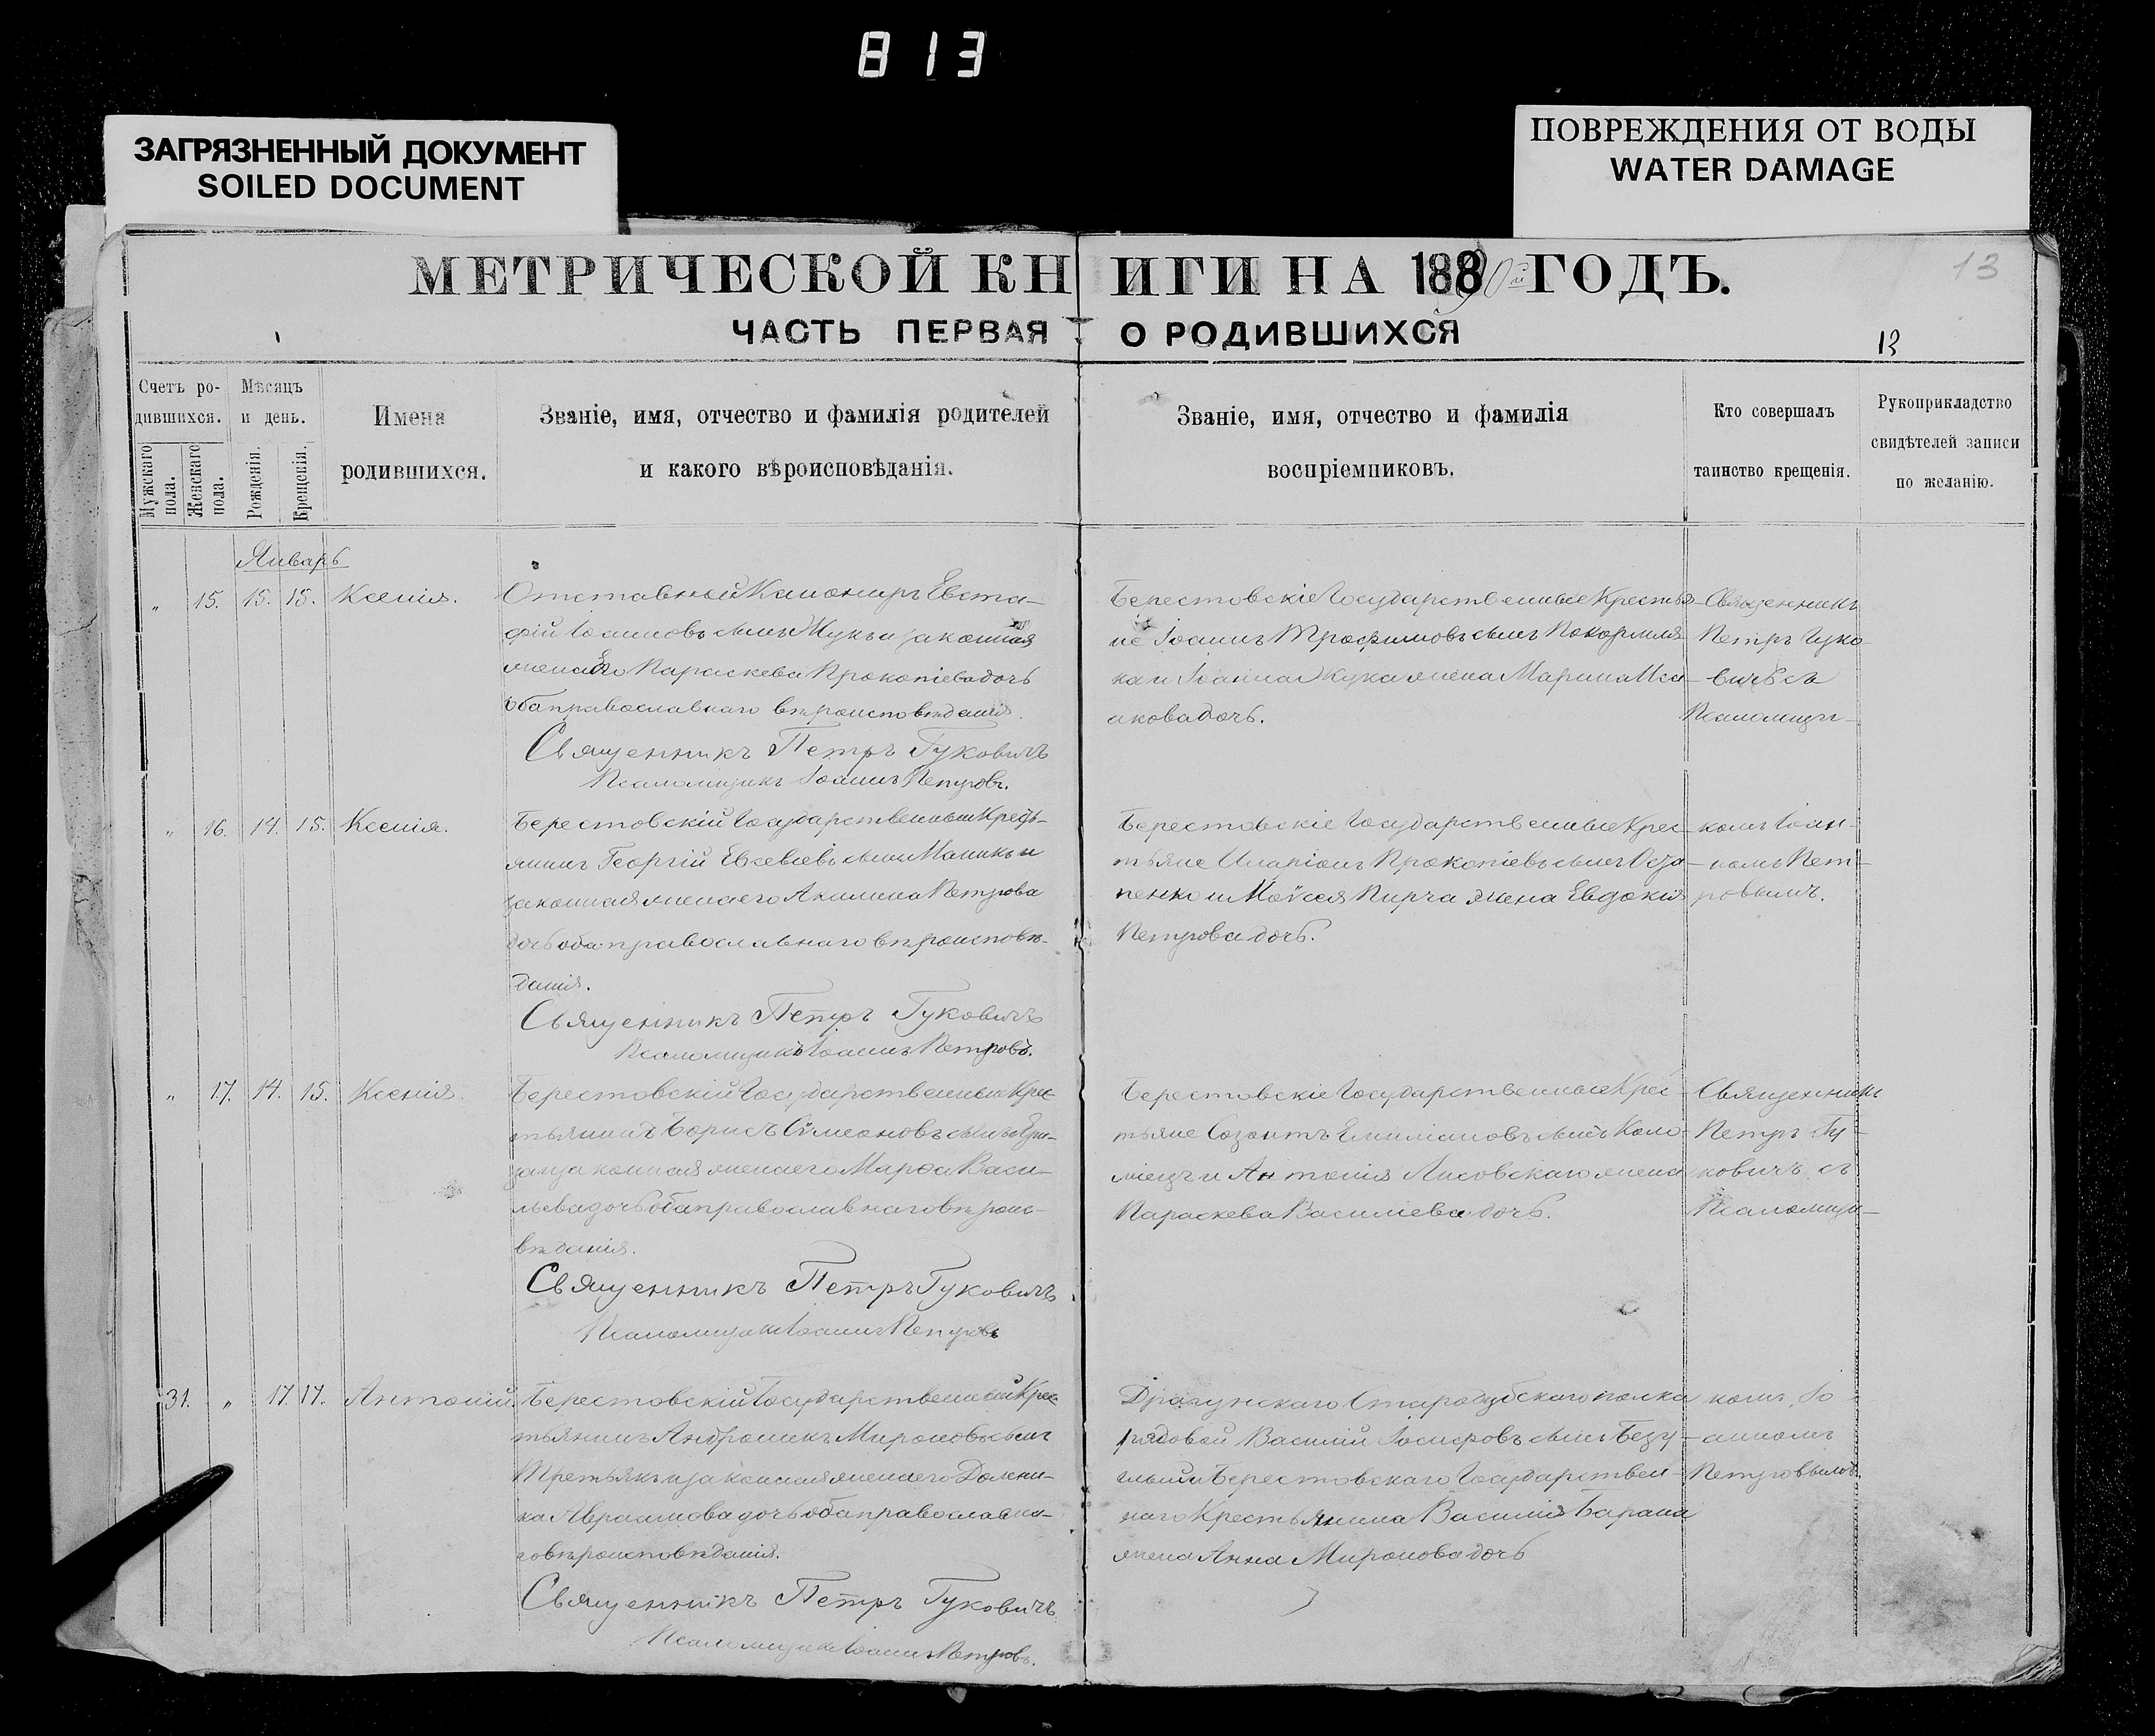 813
ЗАГРЯЗНЕННЫЙ ДОКУМЕНТ
SOILED DOCUMENT
ПОВРЕЖДЕНИЯ ОТ ВОДЫ
WATER DAMAGE
МЕТРИЧЕСКОЙ КНИГИ НА 1890й ГОДЪ.
13
ЧАСТЬ ПЕРВАЯ О РОДИВШИХСЯ
13
Счетъ ро-
дившихся.
Мужскаго пола.
Женскаго пола.
Мѣсяцъ
и день.
Рожденія.
Крещенія.
Имена
родившихся.
Званіе, имя, отчество и фамилія родителей
и какого вѣроисповѣданія.
Званіе, имя, отчество и фамилія
воспріемниковъ.
Кто совершалъ
таинство крещенія.
Рукоприкладство
свидѣтелей записи
по желанію.
Январь
" 15. 15. 15. Ксенія.
Отставной Канониръ Евста-
фій Іоанновъ сынъ Жукъ и законная
жена Его Параскева Прокопіева дочь
оба православнаго вѣроисповѣданія.
Священникъ Петръ Гуковичъ
Псаломщикъ Іоаннъ Петровъ.
Берестовскіе Государственные Крестья-
не Іоаннъ Трофимовъ сынъ
ка и Іоанна Жука жена Марина Иса-
акова дочь.
Священникъ
Петръ Гуко-
вичъ съ
Псаломщи-
" 16. 14. 15. Ксенія.
Берестовскій Государственный Кресть-
янинъ Георгій Евсевіевъ сынъ Маликъ и
законная жена его Акилина Петрова
дочь оба православнаго вѣроисповѣ-
данія.
Священникъ Петръ Гуковичъ
Псаломщикъ Іоаннъ Петровъ.
Берестовскіе Государственные Крес-
тьяне Иларіонъ Прокопіевъ сынъ
пенко и Моѵсея Пирча жена Евдокія
Петрова дочь.
комъ Іоан-
номъ Пет-
ровымъ.
" 17. 14. 15. Ксенія.
Берестовскій Государственный Крес-
тьянинъ Борисъ Сѵмеоновъ сынъ
законная жена его Марѳа Васи-
льева дочь оба православнаго вѣроис-
вѣданія.
Священникъ Петръ Гуковичъ
Псаломщикъ Іоаннъ Петровъ
Берестовскіе Государственные Крес-
тьяне Созонтъ Емиліановъ сынъ Коло-
міецъ и Антонія Лисовскаго жена
Параскева Василіева дочь.
Священникъ
Петръ Гу-
ковичъ съ
Псаломщи-
31. " 17. 17. Антоній.
Берестовскій Государственный Крес-
тьянинъ Андроникъ Мироновъ сынъ
Третьякъ и законная жена его Домни-
ка Авраамова дочь оба православна-
го вѣроисповѣданія.
Священникъ Петръ Гуковичъ
Псаломщикъ Іоаннъ Петровъ.
Драгунскаго Стародубскаго полка
рядовой Василій Іосифовъ сынъ Безу-
глый и Берестовскаго Государствен-
наго Крестьянина Василія Барана
жена Анна Миронова дочь
комъ Іо-
анномъ
Петровымъ.